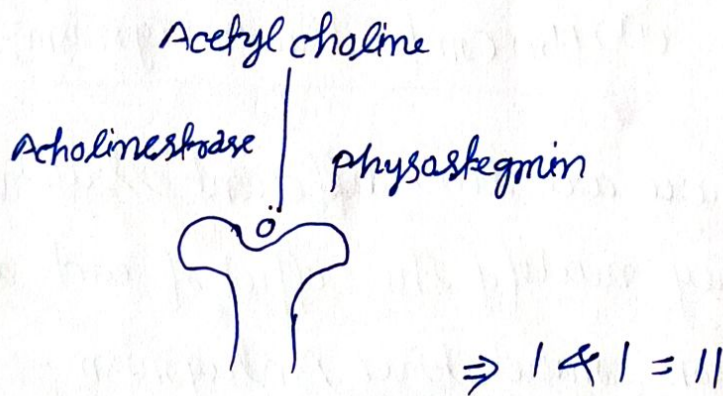 Acetyl choline
Acholinestrase physostegmin
⇒ 1 & 1 = 11